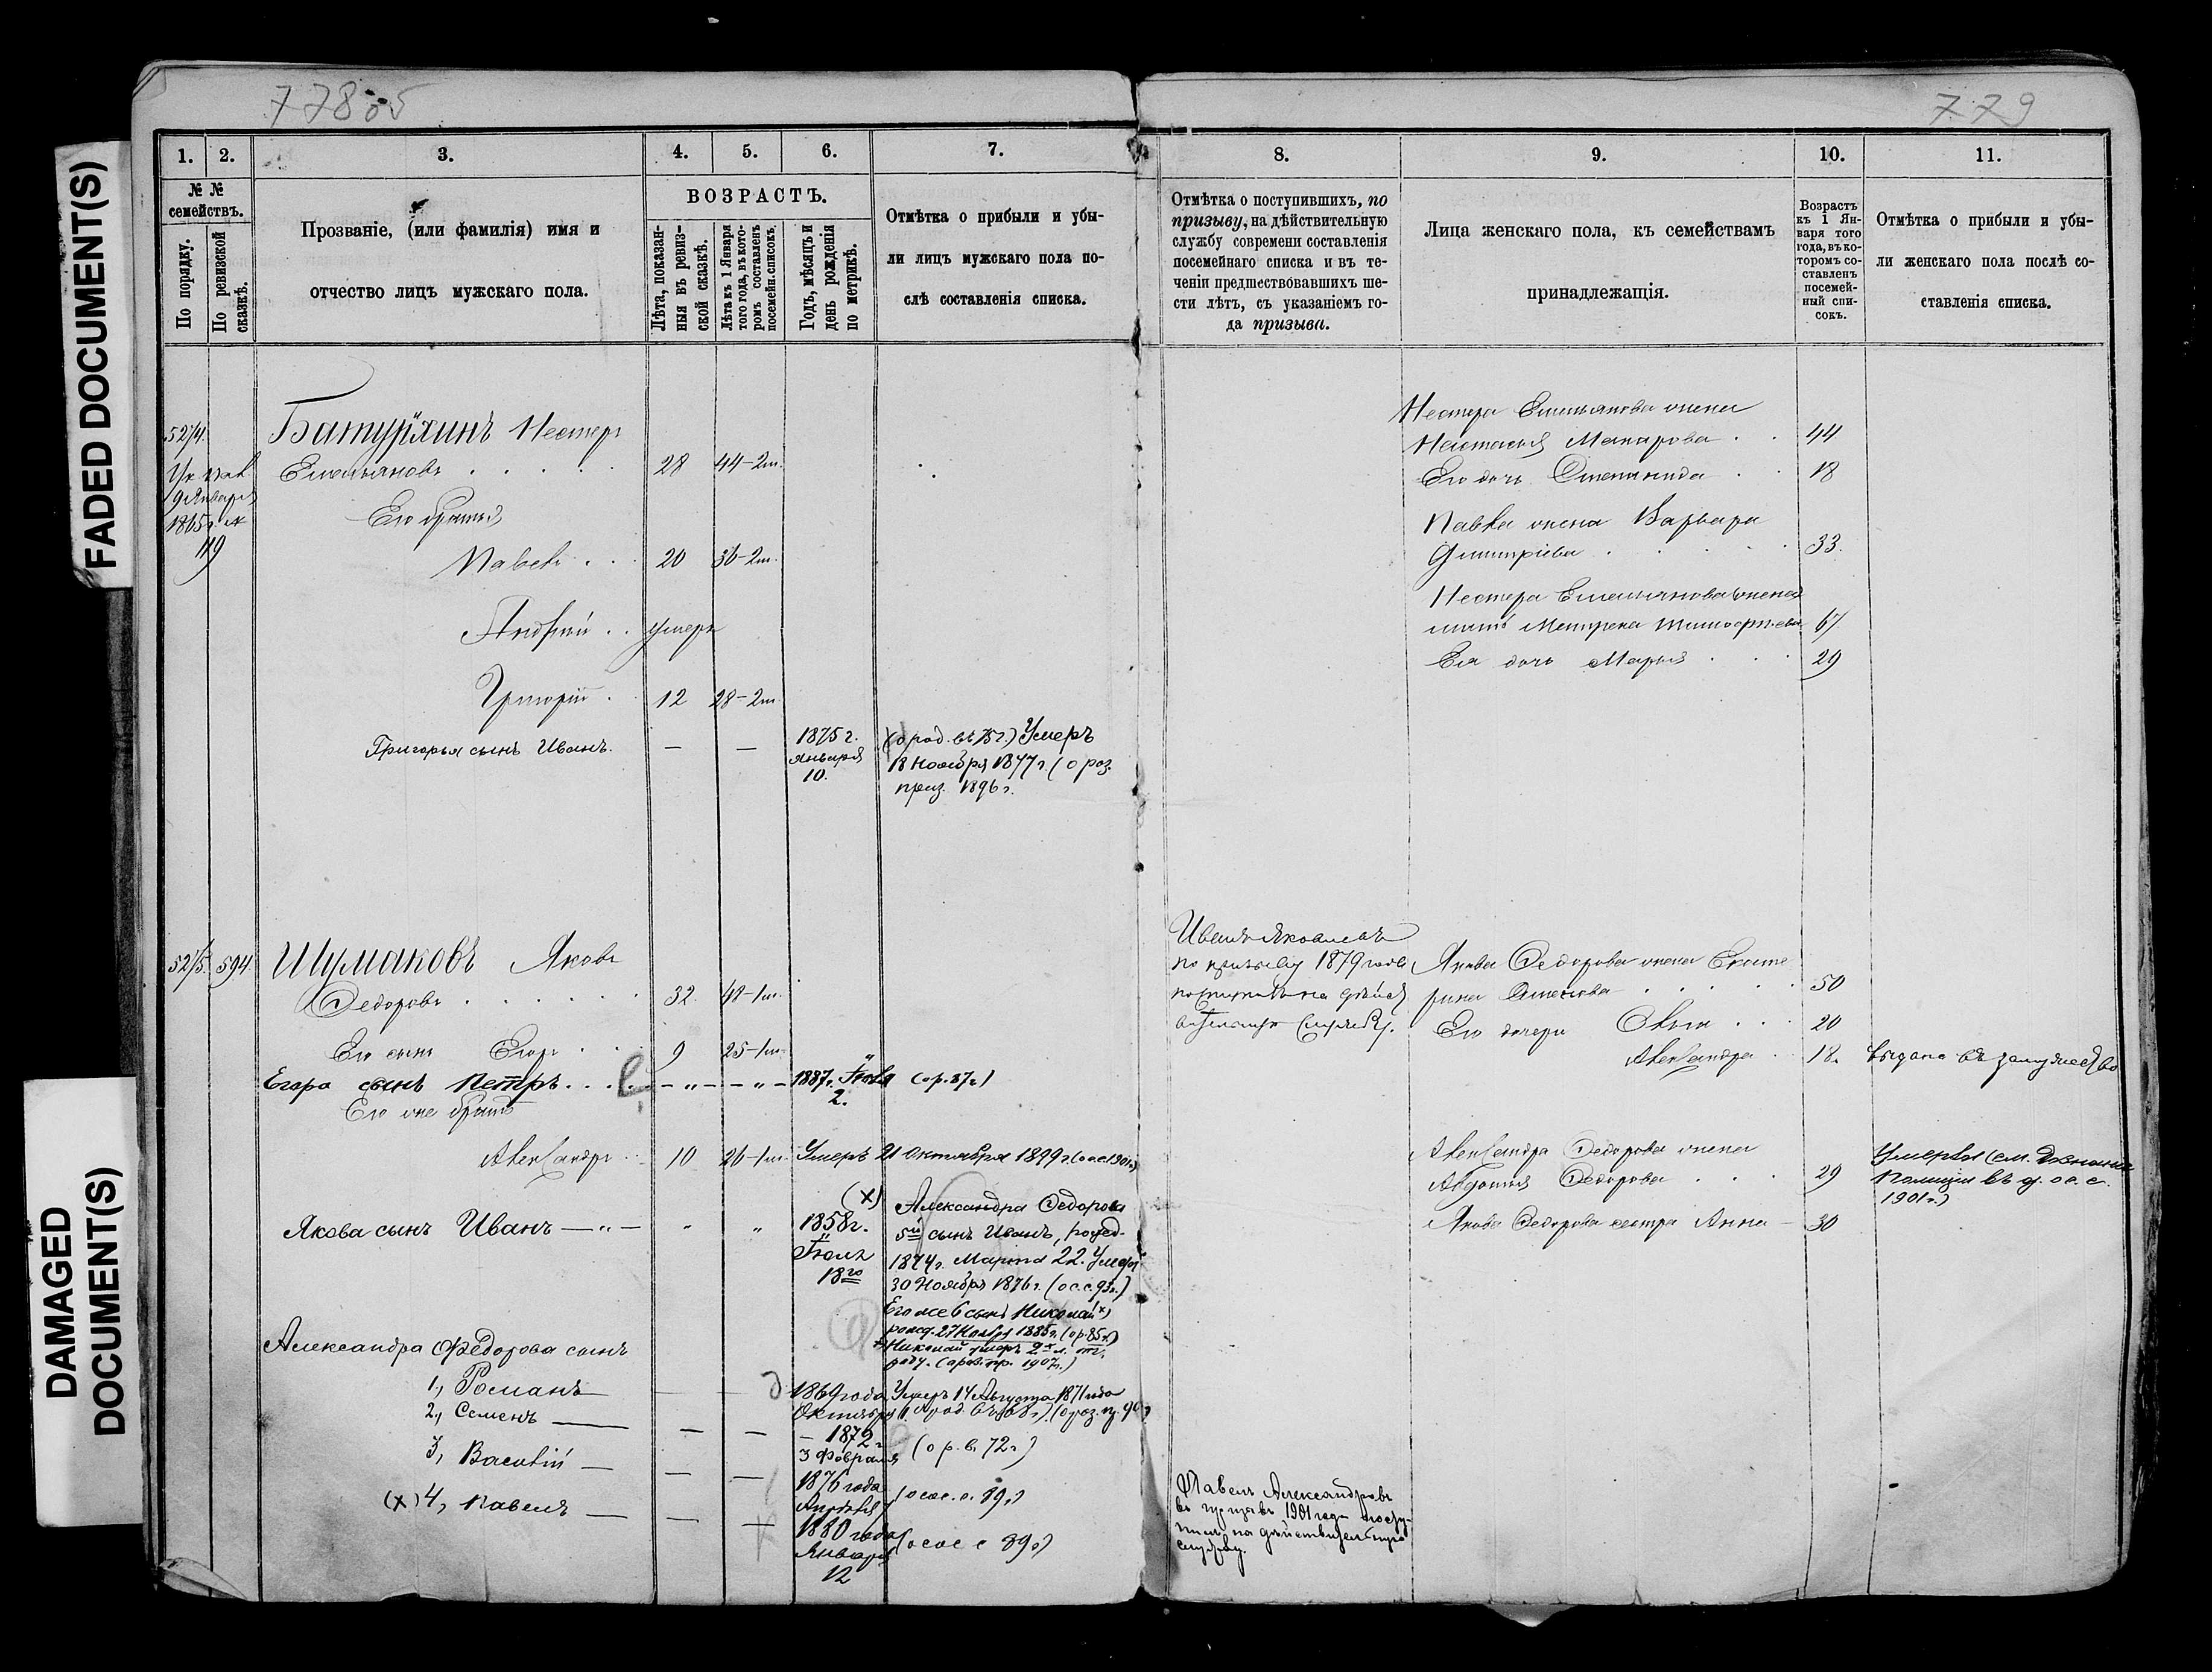 FADED DOCUMENT(S)
DAMAGED
DOCUMENT(S)
778об
1.
2.
3.
4.
5.
6.
7.
№ №
семействъ.
По порядку.
По ревизской
сказкѣ.
Прозваніе, (или фамилія) имя и
отчество лицъ мужскаго пола.
ВОЗРАСТЪ.
Лѣта, показан-
ныя въ ревиз-
ской сказкѣ.
Лѣта къ 1 Января
того года, въ кото-
ромъ составленъ
посемейн. списокъ.
Годъ, мѣсяцъ и
день рожденія
по метрикѣ.
Отмѣтка о прибыли и убы-
ли лицъ мужскаго пола по-
слѣ составленія списка.
52/4.
Батурхинъ Нестеръ
Емельяновъ
28
44-2м.
9 Января
1865 г. №
119
Его братья
Павелъ
20
36-2м.
Андрей
умеръ
Григорій
12
28-2м.
Григорья сынъ Иванъ.
—
—
1875 г.
января
10.
(о род. въ 75 г.) Умеръ
18 Ноября 1877 г. (о роз.
приз. 1896 г.
52/5.
594
Шумаковъ Яковъ
Федоровъ
32
48-1м.
Его сынъ Егоръ
9
25-1м.
Егора сынъ Петръ
1887 г. Іюля
2.
(о р. 87 г.)
Его же братъ
Александръ
10
26-1м.
Умеръ 21 Октября 1899 г. (о с.с. 1901 г.)
Якова сынъ Иванъ
(х)
1858 г.
Іюля
18го
Александра Федорова
5й сынъ Иванъ, рожд.
1874 г. Марта 22. Умеръ
30 Ноября 1876 г. (о с.с. 93 г.)
Его же 6 сынъ Николай х)
рожд. 27 Ноября 1885 г. (о р. 85 г.)
х) Николай умеръ 2х л. отъ
роду. (о роз. пр. 1907 г.)
Александра Федорова сынъ
1, Романъ
1869 года
Октября 1
Умеръ 14 Августа 1871 года
2, Семенъ
1872 г.
3 Февраля
(о р. в. 72 г.)
3, Василій
1876 года
(о сос. с. 89 г.)
(х) 4, Павелъ
1880 года
Января
12
(о сос с 89 г)
779
8.
9.
10.
11.
Отмѣтка о поступившихъ, по
призыву, на дѣйствительную
службу современи составленія
посемейнаго списка и въ те-
ченіи предшествовавшихъ ше-
сти лѣтъ, съ указаніемъ го-
да призыва.
Лица женскаго пола, къ семействамъ
принадлежащія.
Возрастъ
къ 1 Ян-
варя того
года, въ ко-
торомъ со-
ставленъ
посемей-
ный спи-
сокъ.
Отмѣтка о прибыли и убы-
ли женскаго пола послѣ со-
ставленія списка.
Нестера Емельянова жена
Настасья Макарова
44
Его дочь Степанида
18
Павла жена Варвара
Дмитріева
33.
Нестера Емельянова
мать Матрена Тимофѣева
67
Ея дочь Марья
29
Иванъ Яковлевъ
по призыву 1879 года
поступилъ на дѣйст
вительную службу.
Якова Федорова жена Екате
рина
50
Его дочери Ольга
20
Александра
18.
выдана въ замужество
Александра Федорова жена
Авдотья Федорова
29
Умерла (см. Дознаніе
Полиціи въ д. о с. с.
1901 г.)
Якова Федорова сестра Анна
30
Павелъ Александровъ
въ призывъ 1901 года посту-
пилъ на дѣйствительную
службу.